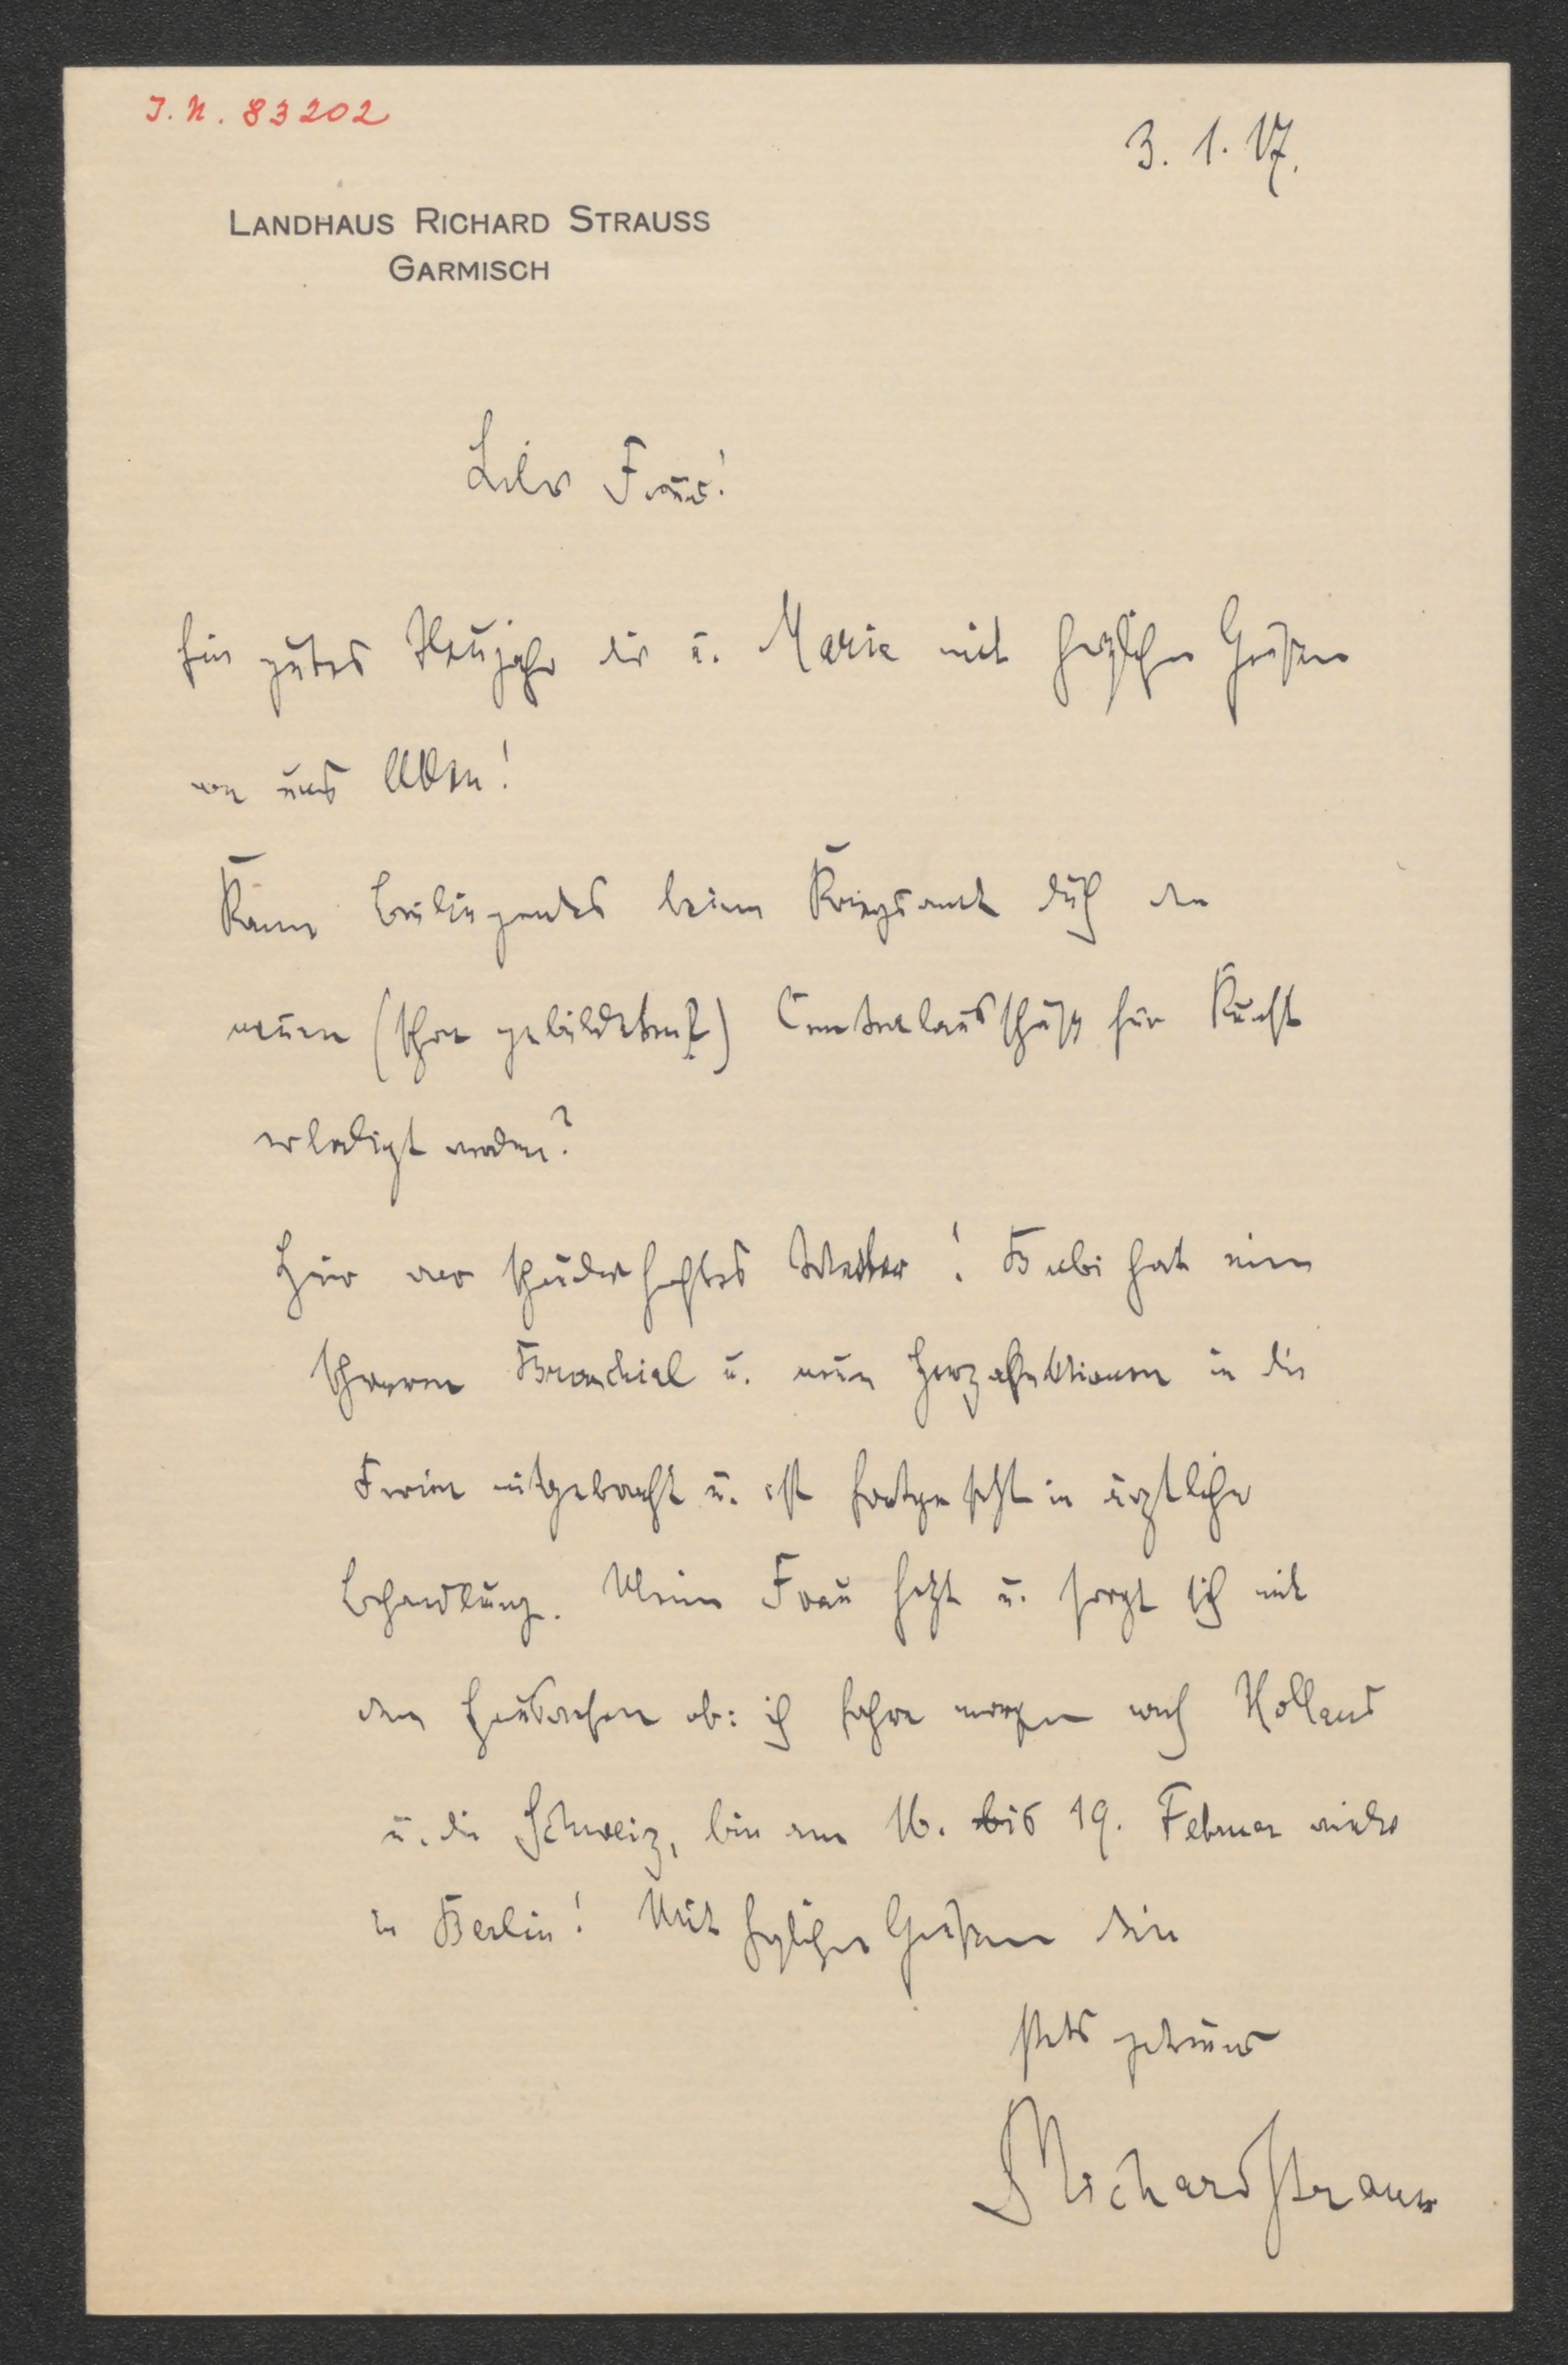 I. N. 83202
3. 1. 17.
LANDHAUS RICHARD STRAUSS
GARMISCH
Lieber Freund!
Ein gutes Neujahr dir u. Marie mit herzlichen Grüßen
von uns Allen!
Kann beiliegendes beim Kriegsamt durch den
neuen (schon gebildeten?) Centralausschuß für Kunst
erledigt werden?
Hier war schauderhaftes Wetter! Bubi hat einen
schweren Bronchial u. Herzaffektionen in die
Ferien mitgebracht u. ist fortgesetzt in ärztlicher
Behandlung. Meine Frau hetzt u. sorgt sich mit
dem ab: ich fahre morgen nach Holland
u. die Schweiz, bin am 16. bis 19. Februar wieder
in Berlin! Mit herzlichen Grüßen dein
stets getreuer
Richard Strauss